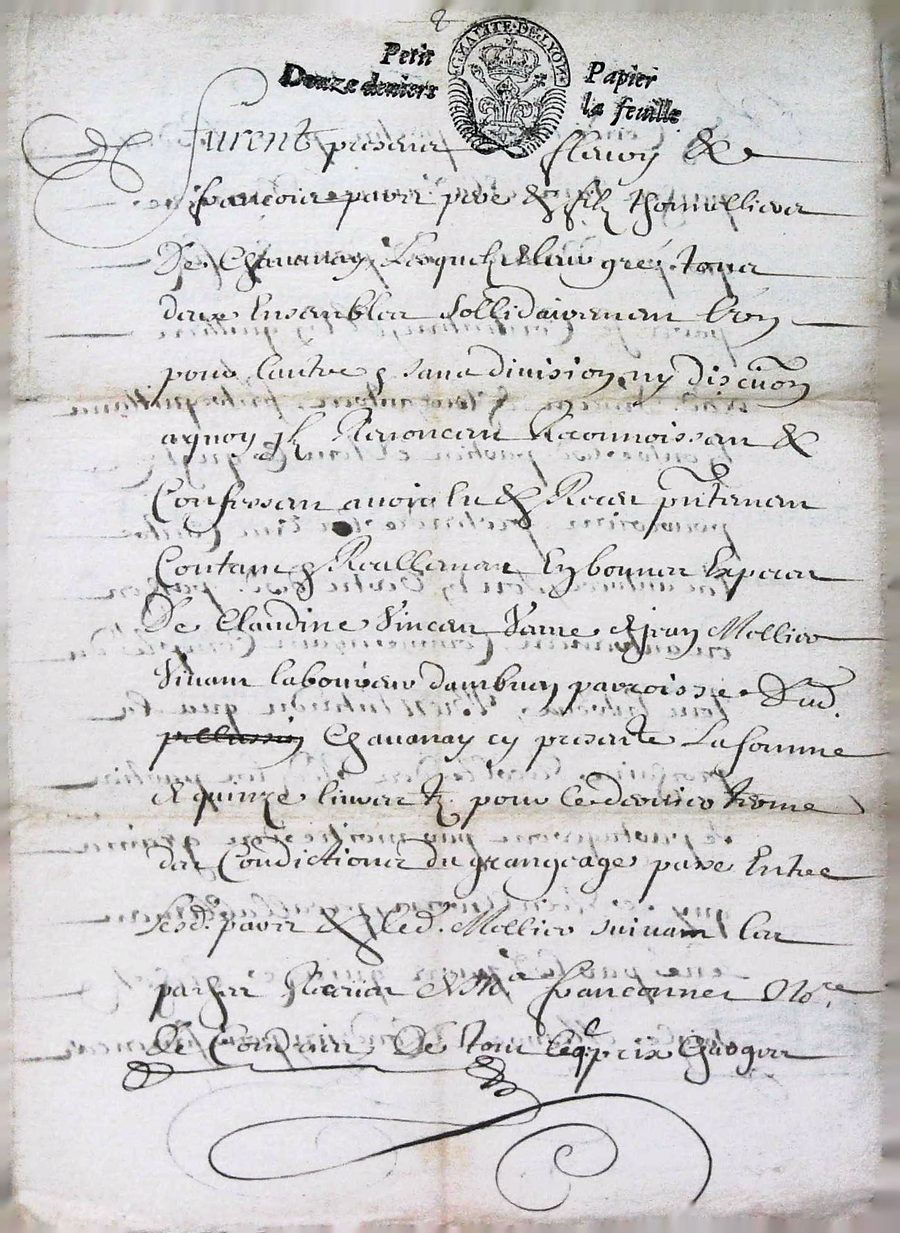 Petit Papier
Douze deniers la feuille
GNALITE·DE·LYON
furent presens fleury &
francois pavir pere & filz thonnelliers
De Chavanay Lesquelz de leur gré tous
deux Ensembles sollidairemen L'un
pour lautre & sans division ny discution
a quoy ilz Renoncen Reconnoissen &
Confessen avoir eu & Receu pntemen
Contant & Reallemen En bonnes Especes
De Claudine Vincen vefve de jean Mellier
vivant laboureur dambuen parroisse dud.
Chavanay cy presente La somme
de quinze livres tz. pour le dernier terme
des Condictions du grangeage passe Entre
lesd. pavir & led. Mellier suivant les
par Me franconnet No.re
de Condrieu De tout leql prix Charges